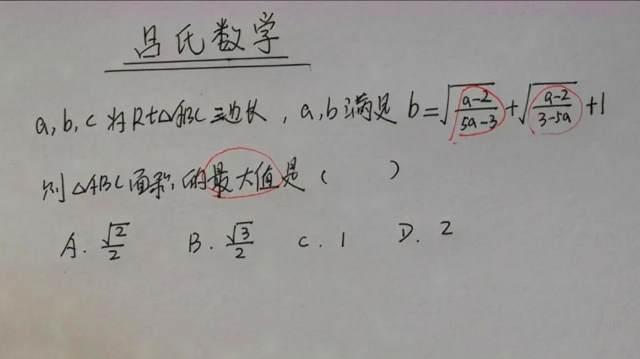 吕氏数学
a,b,c为Rt△ABC三边长,a,b满足 b=√((a-2)/(5a-3))+√((a-2)/(3-5a))+1
则△ABC面积的最大值是( )
A. √2/2 B. √3/2 C. 1 D. 2